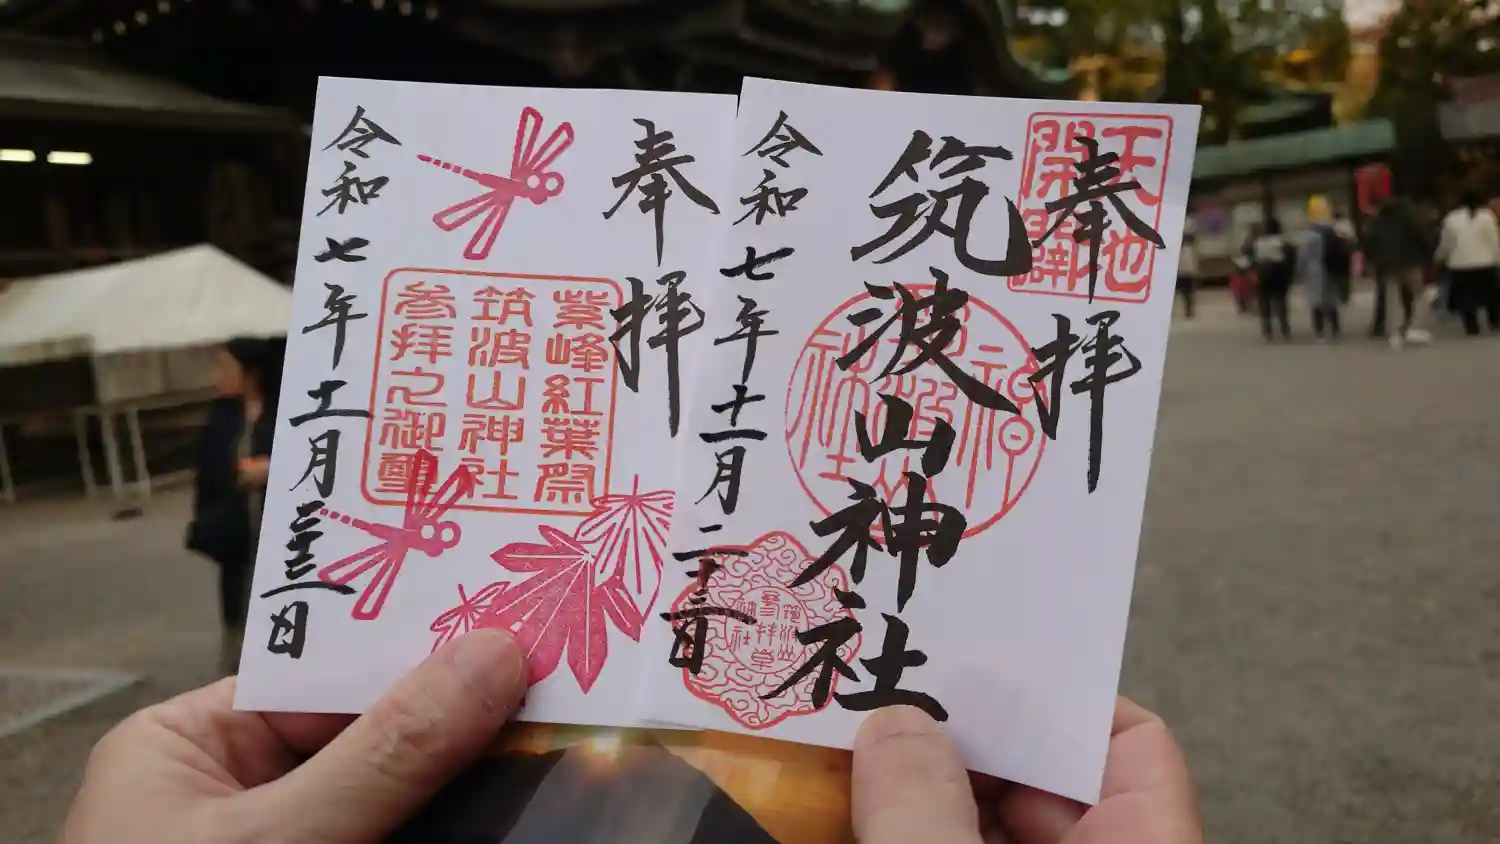 奉拝
天地
開闢
筑波山神社
令和七年十一月二十三日
奉拝
紫峰紅葉祭
筑波山神社
参拝之御璽
令和七年十一月二十三日